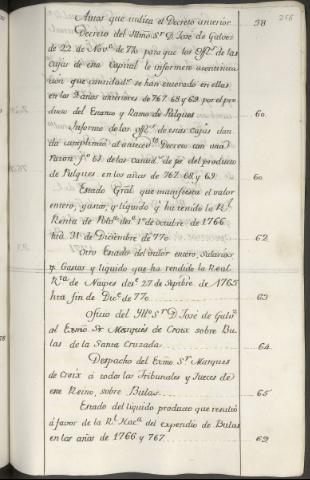 Autos que indica el Decreto anterior 58
Decreto del Illmo Sr D. José de Galvez
de 22 de Novre de 770 para que los Ofics de las
Cajas de esta Capital le informen a continua
cion que cantidads se han enterado en ellas
en los 3 años anteriores de 767. 68 y 69. por el pro
ducto del Estanco y Ramo de Pulques 60
Informe de los ofics de estas cajas dan
do cumplimto al anteced.te Decreto con una
Razon fs 61 de las cantids de ps del producto
de Pulques en los años de 767. 68 y 69. 60
Estado Gral que manifiesta el valor
entero, gastos, y liquido q ha rendido la Rl
Renta de 1o de octubre de 1766
hta 31 de Diciembre de 770 62
Otro Estado del valor entero, Salarios
y Gastos y liquido que ha rendido la Real
Rta de Naypes des.e 27 de Septibre de 1765
hta fin de Dice de 770 63
Oficio del Yllo Sr D José de Galvz
al Exmo Sr Marqués de Croix sobre Bu
las de la Santa Cruzada 64
Despacho del Exmo Sr Marques
de Croix á todos los Tribunales y Jueces de
este Reino, sobre Bulas 65
Estado del liquido producto que resultó
á favor de la Rl Hacda del expendio de Bulas
en los años de 1766 y 767 69